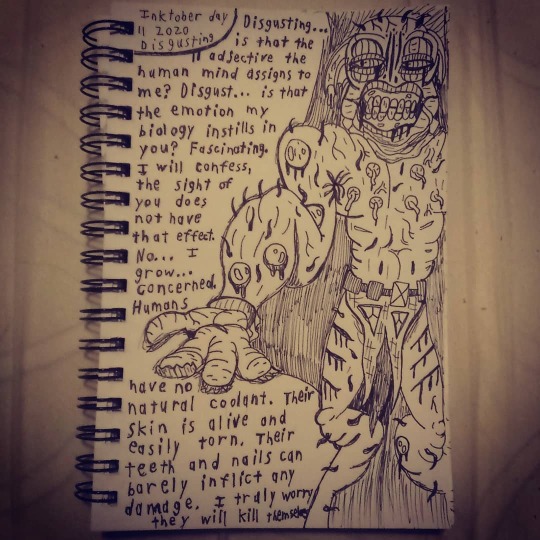 Inktober day
11 2020
Disgusting
Disgusting...
is that the
adjective the
human mind assigns to
me? Disgust... is that
the emotion my
biology instills in
you? Fascinating.
I will confess,
the sight of
you does
not have
that effect.
No... I
grow...
concerned.
Humans
have no
natural coolant. Their
skin is alive and
easily torn. Their
teeth and nails can
barely inflict any
damage. I truly worry
they will kill themselves